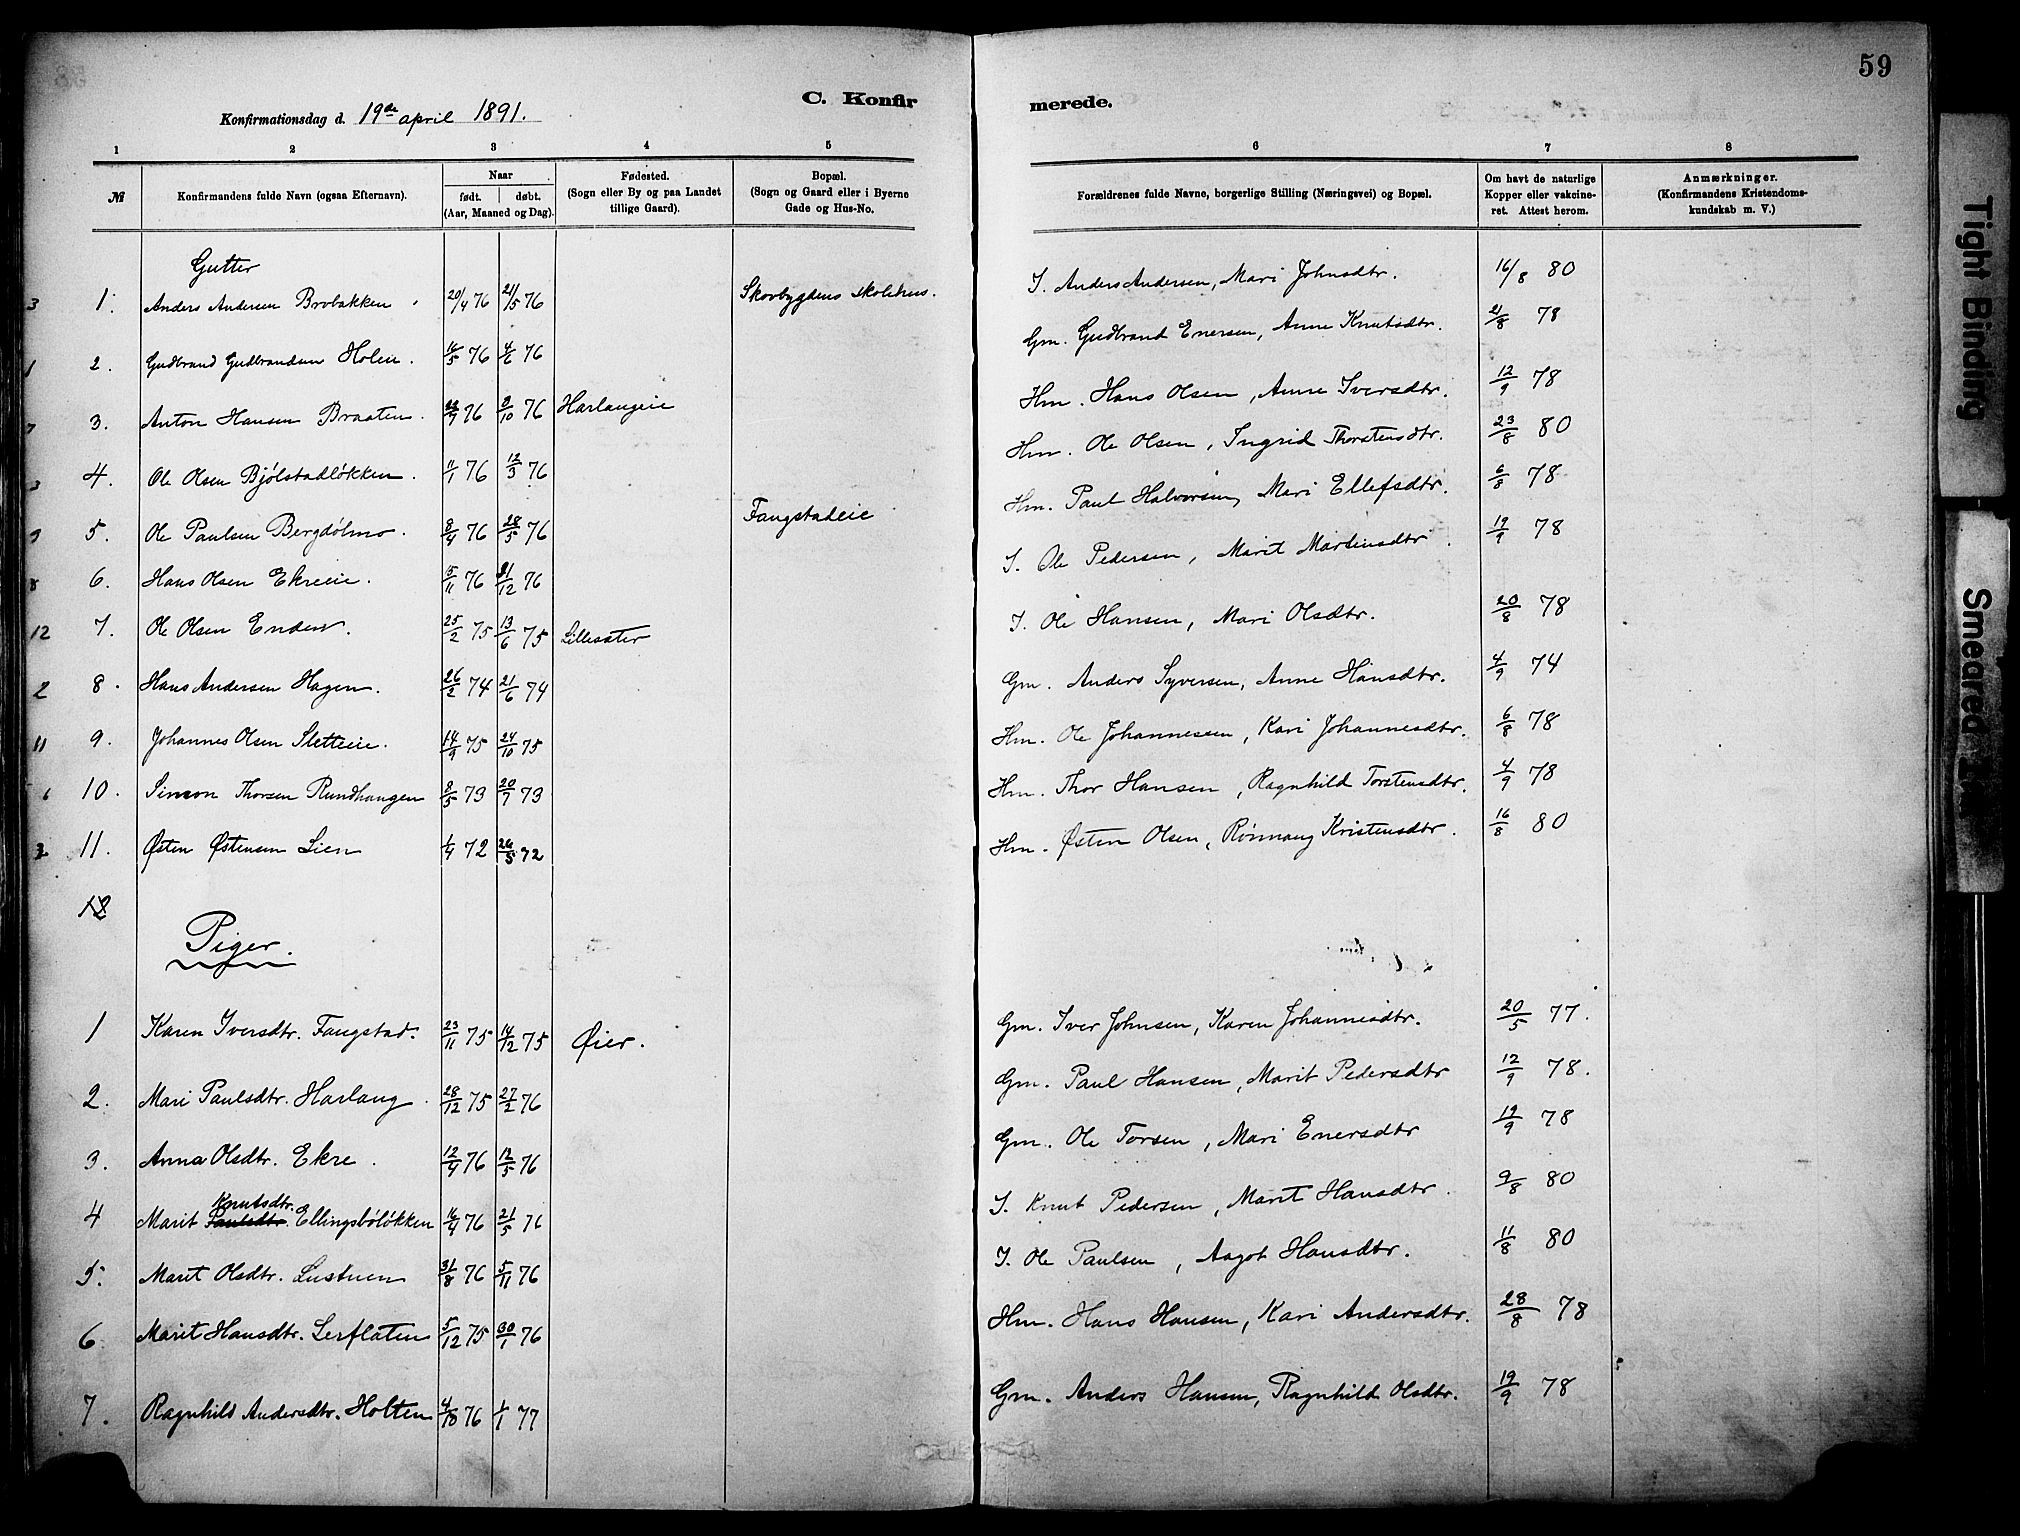 59
C. Konfirmerede.
Konfirmationsdag d. 19de april 1891.
1 2 3 4 5 6 7 8
№ Konfirmandens fulde Navn (ogsaa Efternavn). Naar født. døbt. (Aar, Maaned og Dag). Fødested. (Sogn eller By og paa Landet tillige Gaard). Bopæl. (Sogn og Gaard eller i Byerne Gade og Hus-No. Forældrenes fulde Navne, borgerlige Stilling (Næringsvei) og Bopæl. Om havt de naturlige Kopper eller vakcineret. Attest herom. Anmærkninger. (Konfirmandens Kristendomskundskab m. V.)
Gutter
3 1. Anders Andersen Brobakken 20/4 76 21/5 76 Skovbygdens skolehus. I. Anders Andersen, Mari Johnsdtr. 16/8 80
1 2. Gudbrand Gudbrandsen Holen. 16/5 76 4/6 76 Gm. Gudbrand Enersen, Anne Knutsdtr. 2/8 78
7 3. Anton Hansen Braaten. 76 8/10 76 Harlangeie Hm. Hans Olsen, Anne Iversdtr. 12/9 78
3 4. Ole Olsen Bjølstadløkken. 11/1 76 12/3 76 Hm. Ole Olsen, Ingrid Thorstensdtr. 23/8 80
9 5. Ole Paulsen Bergdølmo. 8/4 76 28/5 76 Fangstadeie Hm. Paul Halvorsen, Mari Ellefsdtr. 6/8 78
8 6. Hans Olsen Ekreeie. 5/11 76 31/12 76 I. Ole Pedersen, Marit Martinsdtr. 19/9 78
12 7. Ole Olsen Enden. 25/2 75 13/6 75 Lillesæter I. Ole Hansen, Mari Olsdtr. 20/8 78
2 8. Hans Andersen Hagen. 26/2 74 21/6 74 Gm. Anders Syversen, Anne Hansdtr. 4/9 74
11 9. Johannes Olsen Sletteeie. 14/9 75 24/10 75 Hm. Ole Johannessen, Kari Johannesdtr. 6/8 78
6 10. Simon Thorsen Rundhaugen 8/5 73 20/7 73 Hm. Thor Hansen, Ragnhild Torstensdtr. 4/9 78
11. Østen Østensen Lien 1/4 72 26/5 72 Hm. Østen Olsen, Rønnaug Kristensdtr. 16/8 80
12
Piger.
1 Karen Iversdtr. Fangstad. 23/11 75 14/12 75 Øier. Gm. Iver Johnsen, Karen Johannesdtr. 20/5 77.
2. Mari Paulsdtr. Harlang. 28/12 75 27/2 76 Gm. Paul Hansen, Marit Pedersdtr 12/9 78.
3. Anna Olsdtr. Ekre. 12/4 76 12/5 76 Gm. Ole Torsen, Mari Enersdtr 19/9 78
Knutsdtr.
4 Marit Paulsdtr. Ellingsbøløkken 16/4 76 21/5 76 I. Knut Pedersen, Marit Hansdtr. 9/8 80
5. Marit Olsdtr. Lustuen 31/8 76 5/11 76 I. Ole Paulsen, Aagot Hansdtr. 11/8 80
6 Marit Hansdtr. Lerflaten 5/12 75 30/1 76 Hm. Hans Hansen, Kari Andersdtr. 28/8 78
7. Ragnhild Andersdtr. Holten 4/10 76 1/1 77 Gm. Anders Hansen, Ragnhild Olsdtr. 19/9 78
Tight Binding
Smeared